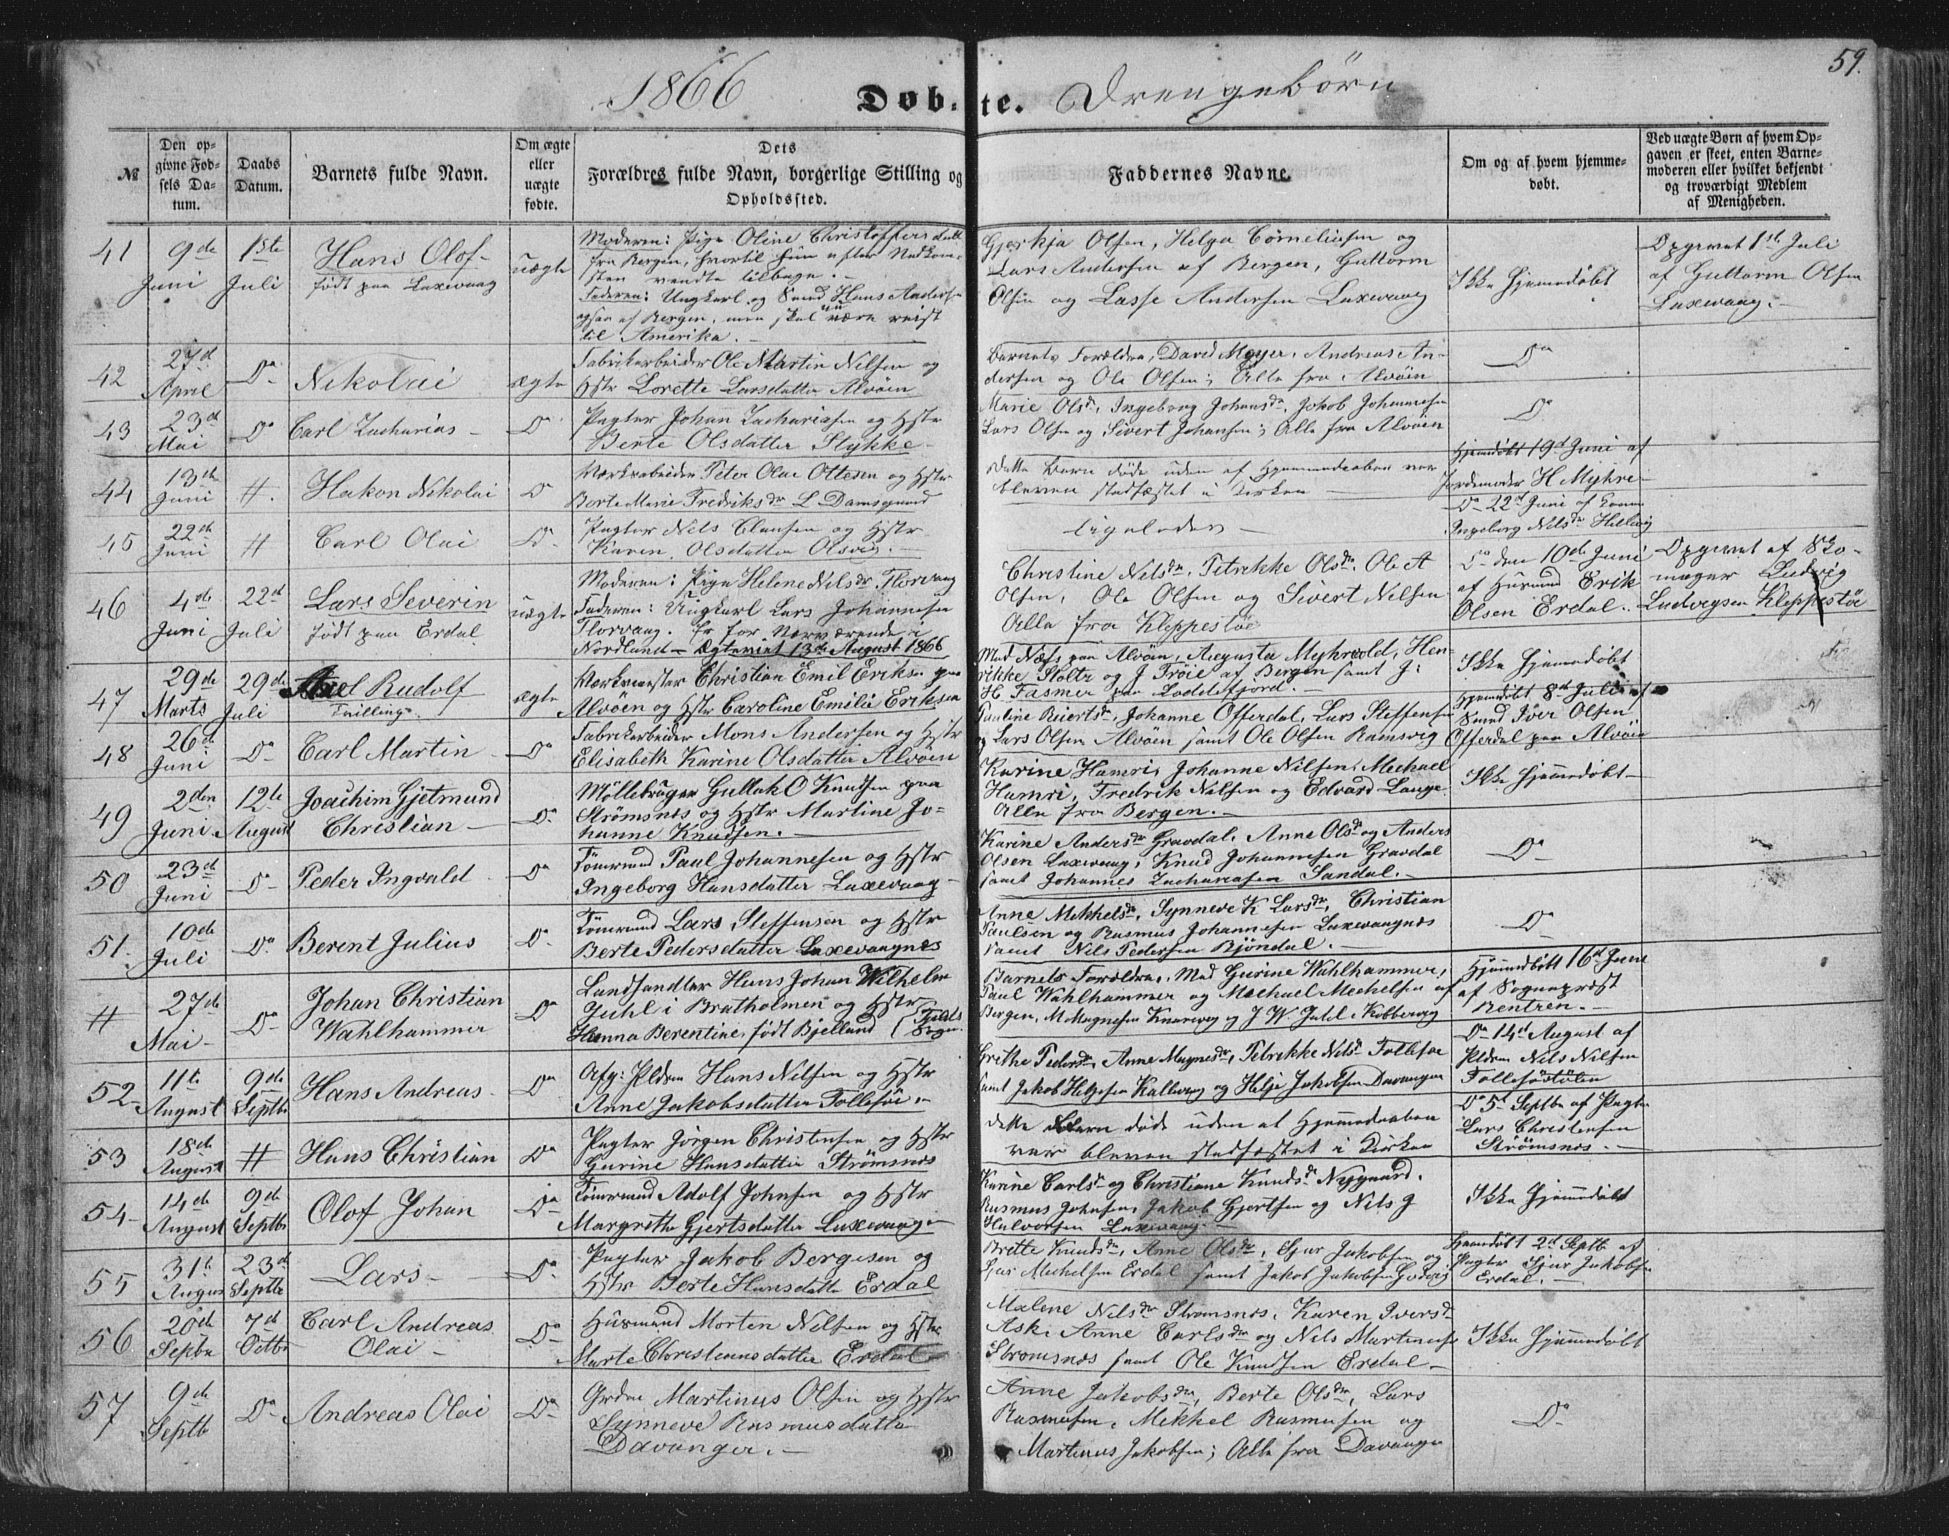 59.
1866 Døbte. Drengebørn
№
Den opgivne Fødsels Datum.
Daabs Datum.
Barnets fulde Navn.
Om ægte eller uægte fødte.
Dets Forældres fulde Navn, borgerlige Stilling og Opholdssted.
Faddernes Navne.
Om og af hvem hjemmedøbt.
Ved uægte Børn af hvem Opgaven er skeet, enten Barnemoderen eller hvilket bekjendt og troværdigt Medlem af Menigheden.
41
9de Juni
1ste Juli
Hans Olof
født paa Laxevaag
uægte
Moderen: Pige Oline Christoffersdatt
fra Bergen, hvortil hun efter Nedkom-
sten vendte tilbage. -
Faderen: Ungkarl og Smed Hans Andersen
ogsaa af Bergen, men skal nu være reist
til Amerika. -
Olsen, Helga Corneliusen og
Lars Andersen af Bergen, Guttorm
Olsen og Lasse Andersen Laxevaag
Ikke Hjemmedøbt
Opgivet 1ste Juli
af Guttorm Olsen
Laxevaag. -
42
27d April
Do
Nikolai
ægte
Fabrikarbeider Ole Martin Nilsen og
Hstr Lorette Larsdatter Alvøen
Barnets Forældre, David Meyer, Andreas An-
dersen og Ole Olsen; Alle fra Alvøen
Do
43
23d Mai
Do
Carl Zacharias -
Do
Pagter Johan Zachariasen og Hstr
Berte Olsdatter Stykke -
Marie Olsdr, Ingeborg Johansdr, Jokob Johannesen
Lars Olsen og Sivert Johansen; Alle fra Alvøen
Do
44
13de Juni
#.
Hakon Nikolai
Do
Værkarbeider Peter Olai Ottesen og Hstr
Berte Marie Fredriksdr L Damsgaard
Dette Barn døde uden at Hjemmedaaben var
bleven stadfæstet i Kirken -
Hjemdøbt 19d Juni af
Jordemoder H Myhre -
45
22de Juni
#
Carl Olai
Do
Pagter Nils Clausen og Hstr
Karen Olsdatter Olsvig. -
ligeledes -
Do 22d Juni af Konen
Ingeborg Nilsdr
46
4de Juni
22d Juli
Lars Severin
født paa Erdal
uægte
Moderen: Pige Helene Nilsdr Florvaag
Faderen: Ungkarl Lars Johannesen
Florvaag. Er for Nærværende i
Nordland - Ægteviet 13de August 1866
Christine Nilsdr, Petrikke Olsdr, Ole A
Olsen, Ole Olsen og Sivert Nilsen
Alle fra Kleppestøe
Do den 10de Juni
af Husmand Erik
Olsen Erdal. -
Opgivet af Sko-
mager Ludvig
Ludvigsen Kleppestøe
47
29de Marts
29de Juli
Axel Rudolf
Tvilling.
ægte
Værkmester Christian Emil Eriksen paa
Alvøen og Hstr Caroline Emilie Eriksen
Mad Næss paa Alvøen, Augusta Myhrvold, Hen-
rikke Stoltz og J Frøie af Bergen samt J:
H Fasmer paa Loddefjord. -
Ikke Hjemmedøbt
48
26de Juni
Do
Carl Martin
Do
Fabrikarbeider Mons Andersen og Hstr
Elisabeth Karine Olsdatter Alvøen
Johanne Offerdal, Lars Steffensen
og Lars Olsen Alvøen samt Ole Olsen Ramsvig
Hjemdøbt 8de Juli af
Smed Iver Olsen
Offerdal paa Alvøen
49
2den Juni
12te August
Joachim Gjetmund
Christian -
Do
Møllebruger Gullak O Knudsen paa
Strømsnes og Hstr Martine Jo-
hanne Knudsen. -
Karine Hamri, Johanne Nilsen, Michael
Hamri, Fredrik Nilsen og Edvard Lange.
Alle fra Bergen. -
Ikke Hjemmedøbt -
50
23de Juni
Do
Peder Ingvald
Do
Tømmermd Paul Johannesen og Hstr
Ingeborg Hansdatter Laxevaag -
Karine Andersdr Gravdal, Anne Olsdr og Anders
Olsen Laxevaag, Knud Johannesen Gravdal
samt Johannes Zachariasen Sandal. -
Do
51.
10de Juli
Do
Berent Julius
Do
Tømmermd Lars Steffensen og Hstr
Berte Pedersdatter Laxevaagnes
Anne Mikkelsdr, Synneve K Larsdr, Christian
Paulsen og Rasmus Johannesen Laxevaagnes
samt Nils Pedersen Bjøndal. -
Do
#
27de Mai
Do
Johan Christian
Wahlhammer
Do
Landhandler Hans Johan Wilhelm
Juhl i Bratholmen og Hstr
Hanna Berentine, født Bjelland (Fjelds Sogn.
Barnets Forældre, Mad Gurine Wahlhammer,
Paul Wahlhammer og Michael Michelsen af
Bergen, M Magnesen Knarrevig og J W Juhl i Kobbervig
Hjemdøbt 16de Juni
af Sognepræst
Rentzen. -
52
11te August
9de Septb
Hans Andreas
Do
Afg: Pldrn Hans Nilsen og Hstr
Anne Jakobsdatter Follesøe. -
Grithe Pedersdr, Anne Magnesdr, Petrikke Nilsdr Follesøe
samt Jakob Helgesen Kallevig og Helje Jakobsen Davanger
Do 14de August af
Pldrn Nils Nilsen
Follesøstølen
53
18de August
#
Hans Christian
Do
Pagter Jørgen Christensen og Hstr
Gurine Hansdatter Strømsnes
Dette Barn døde uden at Hjemmedaaben
var bleven stadfæstet i Kirken
Do 5te Septbr af Pagter
Lars Christensen
Strømsnes. -
54
14de August
9de Septb
Olof Johan
Do
Tømmermd Adolf Johnsen og Hstr
Margrethe Gjertsdatter Laxevaag -
Karine Carlsdr og Christiane Knudsdr Nygaard.
Rasmus Johnsen, Jakob Gjertsen og Nils J
Halvorsen Laxevaag. -
Ikke Hjemmedøbt
55
31te August
23d Septb
Lars -
Do
Pagter Jakob Bergesen og
Hstr Berte Hansdatter Erdal
Britte Knudsdr, Anne Olsdr, Sjur Jakobsen og
Sjur Michelsen Erdal samt Jakob Jakobsen
Hjemdøbt 2d Septb af
Pagter Sjur Jakobsen
Erdal. -
56
20de Septbr
7d Octbr
Carl Andreas
Olai -
Do
Husmand Morten Nilsen og Hstr
Marte Christensdatter Erdal -
Malene Nilsdr Strømsnes, Karen Iversdr
Ask, Anne Carlsdr og Nils Martinusen
Strømsnes samt Ole Knudsen Erdal -
Ikke Hjemmedøbt
57
9de Septb
Do
Andreas Olai
Do
Grdm Martinus Olsen og Hstr
Synneve Rasmusdatter
Davanger. -
Anne Jakobsdr, Berte Olsdr, Lars
Rasmusen, Mikkel Rasmusen og
Martinus Jakobsen; Alle fra Davanger
Do